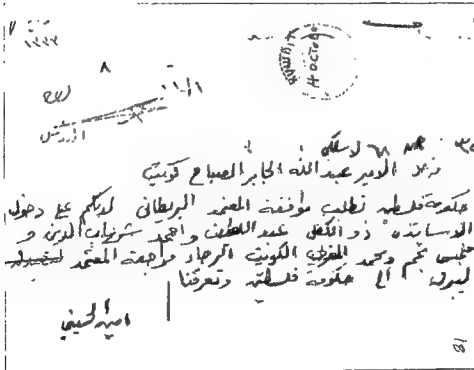 ١٣٣٣
٨
KUWAIT
14 OCTOBER
NR ٦٨ لاسلكي
الامير عبد الله الجابر الصباح كويت
حكومة فلسطين تطلب موافقة المعتمد البريطاني لديكم على دخول
الاساتذة ذو الكفل عبد اللطيف واحمد شهاب الدين و
خميس نجم ومحمد المغربي الكويت الرجاء مراجعة المعتمد
ليبرق الى حكومة فلسطين وتعرفنا
امين الحسيني